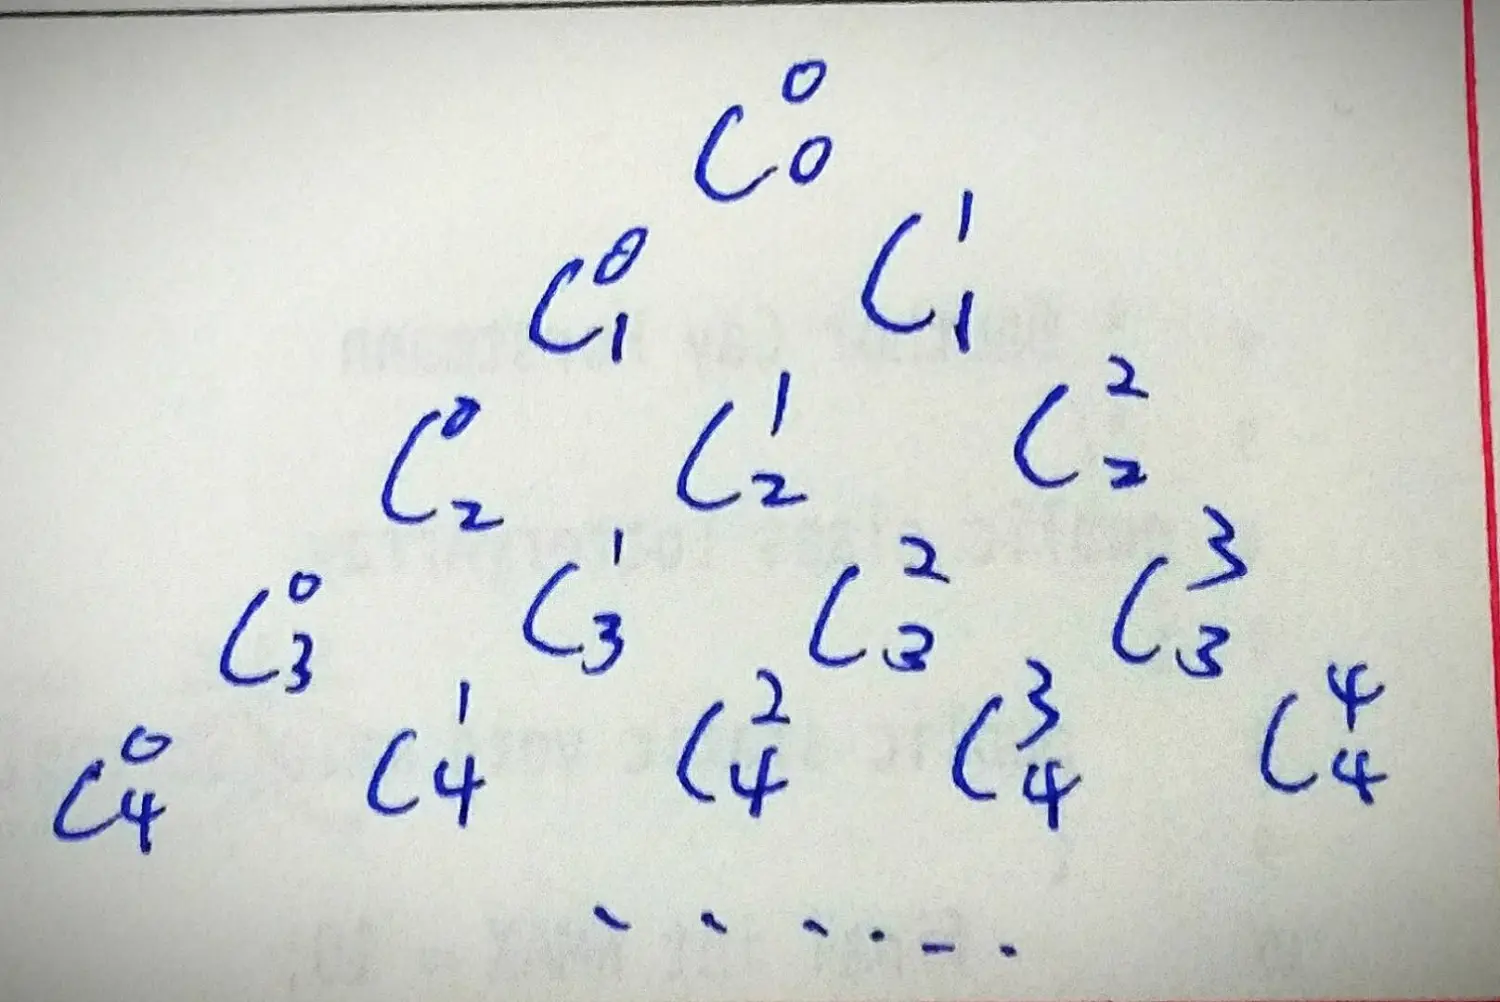 C₀⁰
C₁⁰ C₁¹
C₂⁰ C₂¹ C₂²
C₃⁰ C₃¹ C₃² C₃³
C₄⁰ C₄¹ C₄² C₄³ C₄⁴
......